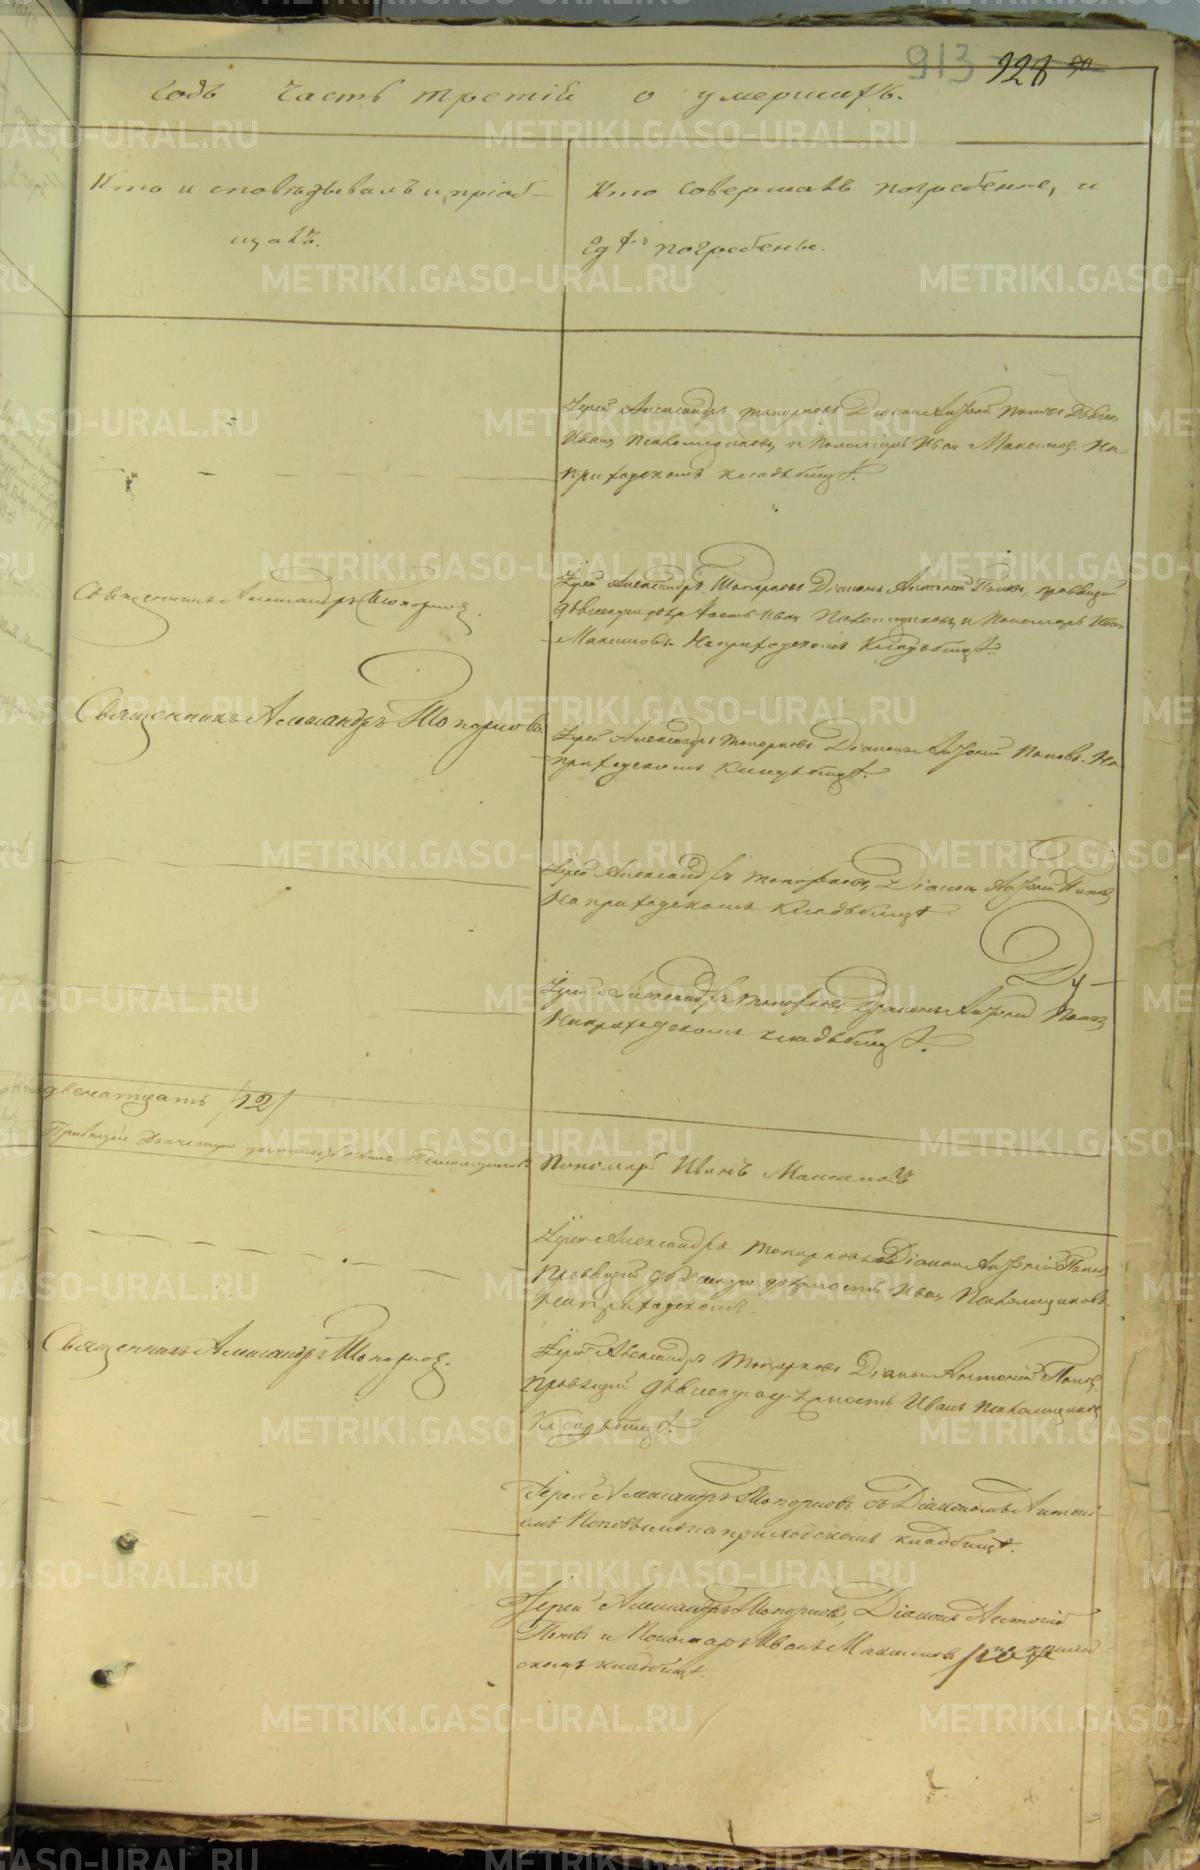 913 928 90
годъ часть третiя о умершихъ.
Кто исповѣдывалъ и прiоб-
щалъ.
Кто совершалъ погребенiе, и
гдѣ погребены.
Iерей Александръ Топорковъ Дiаконъ Антонiй Поповъ
Иванъ и Пономарь Иванъ Максимовъ. На
приходскомъ кладьбищѣ.
Священникъ Александръ Топорковъ.
Iерей Александръ Топорковъ Дiаконъ Антонiй Поповъ, правящiй
должность Иванъ и Пономарь Иванъ
Максимовъ На приходскомъ Кладьбищѣ.
Священникъ Александръ Топорковъ.
Iерей Александръ Топорковъ Дiаконъ Антонiй Поповъ. На
приходскомъ Кладьбищѣ.
Iерей Александръ Топорковъ, Дiаконъ Антонiй Поповъ
На приходскомъ Кладьбищѣ
Iерей Александръ Топорковъ Дiаконъ Антонiй Поповъ
На приходскомъ кладьбищѣ.
двенатцать /12/
Правящiй должность Иванъ
Пономарь Иванъ Максимовъ
Iерей Александръ Топорковъ Дiаконъ Антонiй Поповъ
Правящiй должность Иванъ
на приходскомъ.
Священникъ Александръ Топорковъ.
Iерей Александръ Топорковъ Дiаконъ Антонiй Поповъ
правящiй должность Иванъ
Кладьбищѣ.
Iерей Александръ Топорковъ съ Дiакономъ Антонi-
емъ Поповымъ на приходскомъ кладбищѣ.
Iерей Александръ Топорковъ, Дiаконъ Антонiй
Поповъ и Пономарь Иванъ Максимовъ на приход-
скомъ кладбищѣ.
METRIKI.GASO-URAL.RU